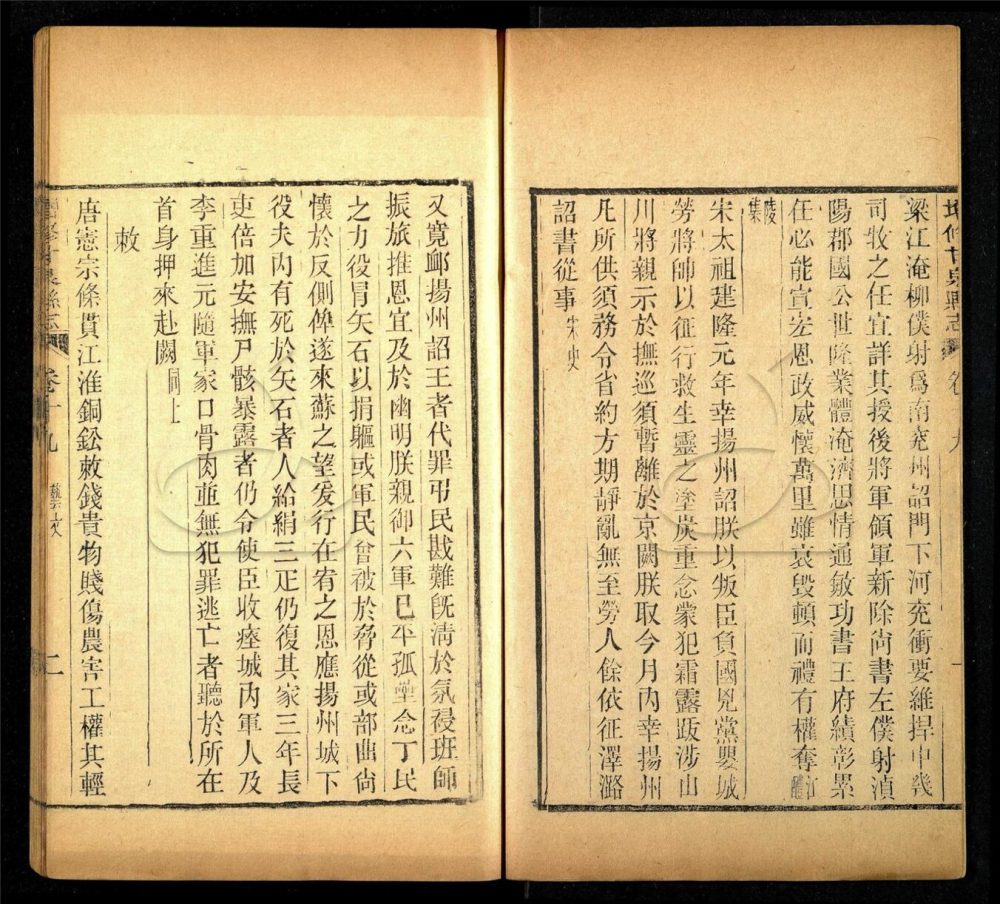 梁江淹柳僕射爲南兖州詔門下河兖衝要維捍中畿
司牧之任宜詳其授後將軍領軍新除尚書左僕射湞
陽郡國公世隆業體淹濟思情通敏功書王府績彰累
任必能宣宏恩政威懷萬里雖哀毁頓而禮有權奪江醴
陵集
宋太祖建隆元年幸揚州詔朕以叛臣負國兇黨嬰城
勞將帥以征行救生靈之塗炭重念蒙犯霜露跋涉山
川將親示於撫巡須暫離於京闕朕取今月内幸揚州
凡所供須務令省約方期靜亂無至勞人餘依征澤潞
詔書從事宋史
又寬卹揚州詔王者代罪弔民戡難旣淸於氛祲班師
振旅推恩宜及於幽明朕親御六軍已平孤壘念丁民
之力役冒矢石以捐軀或軍民曾被於脅從或部曲尙
懷於反側俾遂來蘇之望爰行在宥之恩應揚州城下
役夫内有死於矢石者人給絹三疋仍復其家三年長
吏倍加安撫尸骸暴露者仍令使臣收瘞城内軍人及
李重進元隨軍家口骨肉並無犯罪逃亡者聽於所在
首身押來赴闕同上
敕
唐憲宗條貫江淮銅鈆敕錢貴物賤傷農害工權其輕
增修甘泉縣志 卷十九 藝文 二